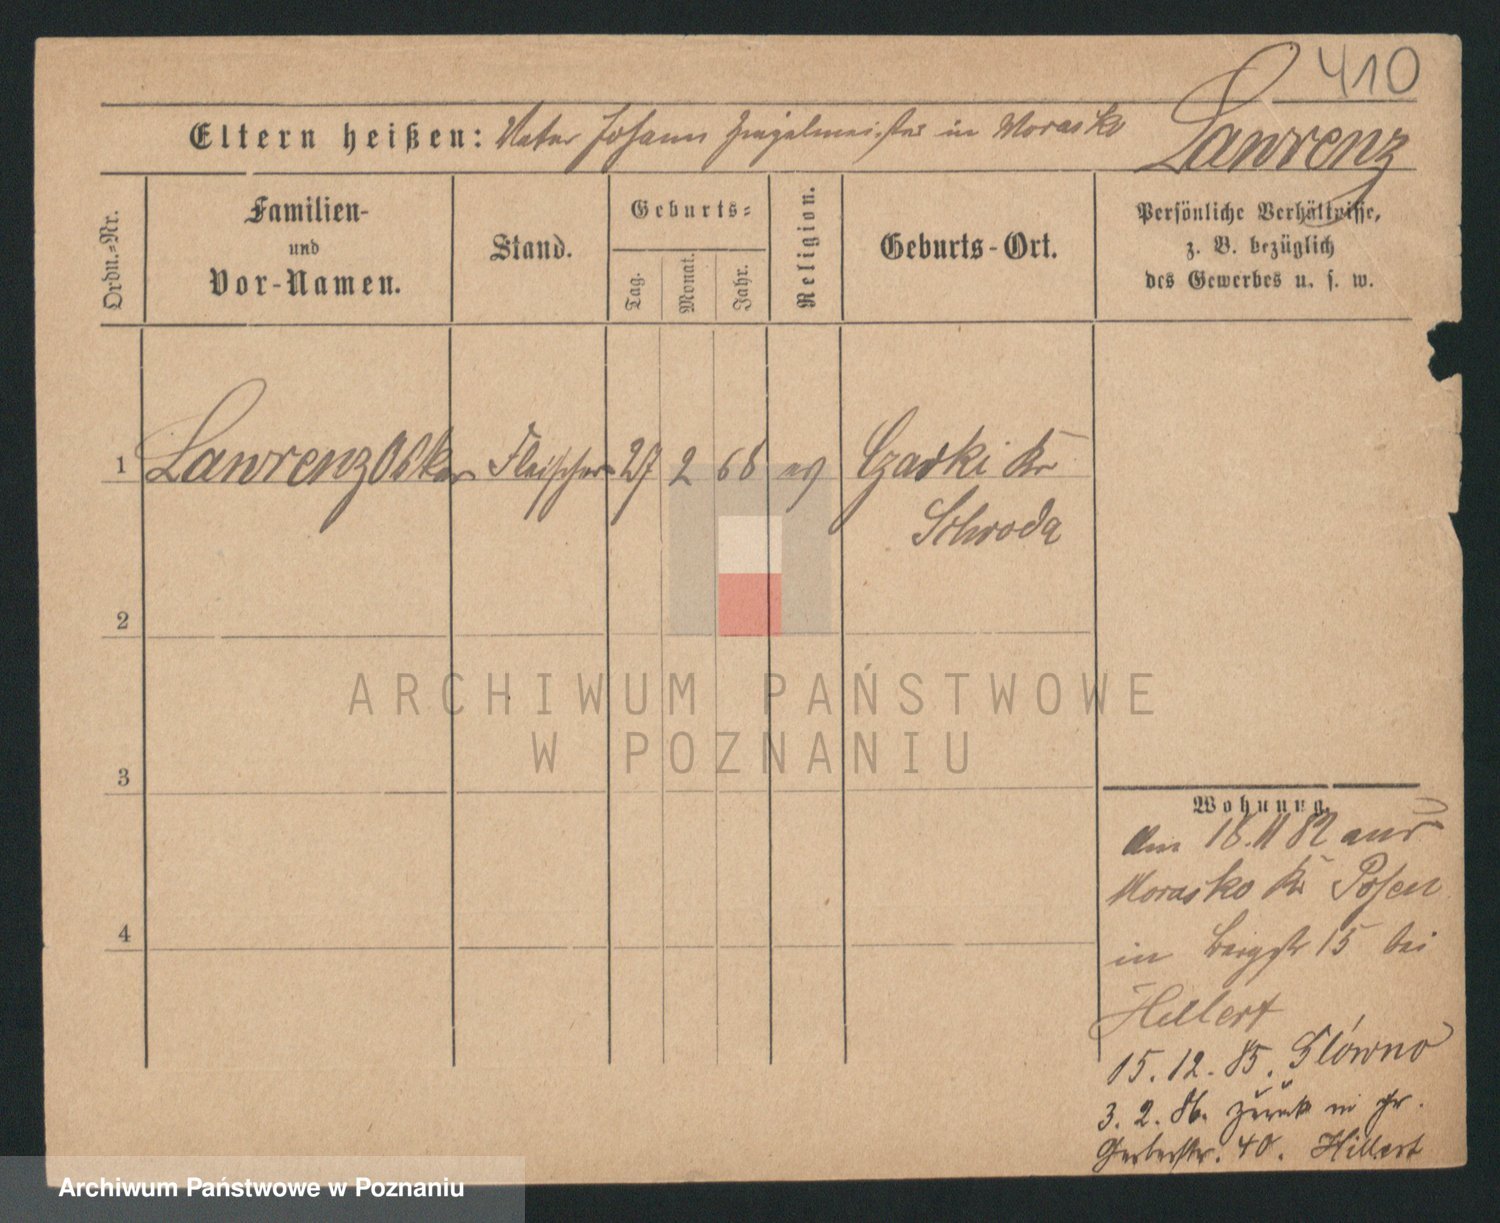 410
Lawrenz
Eltern heißen: Vater Johann Ziegelmeister in Morasko
Ordn.-Nr.
Familien-
und
Vor-Namen.
Stand.
Geburts-
Tag.
Monat.
Jahr.
Religion.
Geburts-Ort.
Persönliche Verhältnisse,
z. B. bezüglich
des Gewerbes u. s. w.
1 Lawrenz Oskar Fleischer 27 2 68 ev Czarki Kr
Schroda
2
3
4
ARCHIWUM PAŃSTWOWE
W POZNANIU
Wohnung.
Am 18.11 82 aus
Morasko Kr Posen
in Bergstr 15 bei
Hillert
15. 12. 85. Główno
3. 2. 86. zurück in gr.
Gerberstr. 40. Hillert
Archiwum Państwowe w Poznaniu